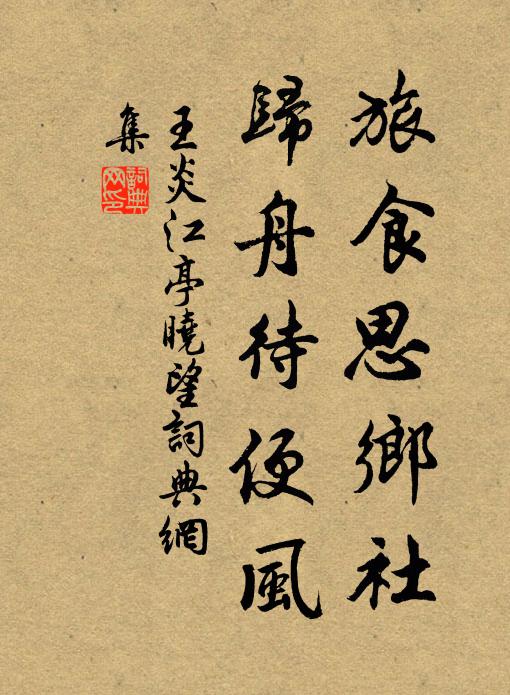 旅食思鄉社
歸舟待便風
王炎江亭曉望詞典網
集
詞典
网印